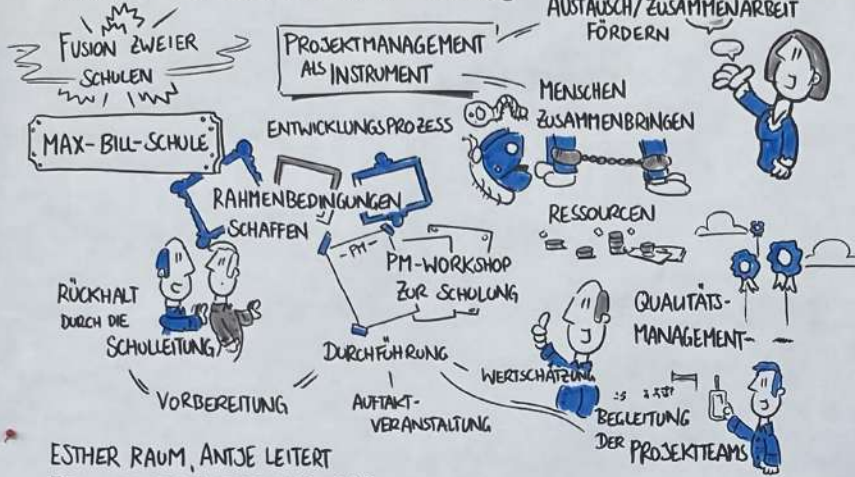 AUSTAUSCH/ZUSAMMENARBEIT
FÖRDERN
FUSION ZWEIER
SCHULEN
PROJEKTMANAGEMENT
ALS INSTRUMENT
MAX-BILL-SCHULE
ENTWICKLUNGSPROZESS
MENSCHEN
ZUSAMMENBRINGEN
RAHMENBEDINGUNGEN
SCHAFFEN
RESSOURCEN
-PM-
PM-WORKSHOP
ZUR SCHULUNG
RÜCKHALT
DURCH DIE
SCHULLEITUNG
QUALITÄTS-
MANAGEMENT-
DURCHFÜHRUNG
WERTSCHÄTZUNG
VORBEREITUNG
AUFTAKT-
VERANSTALTUNG
BEGLEITUNG
DER PROJEKTTEAMS
ESTHER RAUM, ANTJE LEITERT